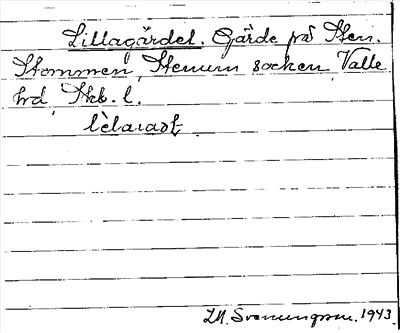 Lillagärdet. Gärde på Sten.
Stommen, Stenum socken Valle
hd Skb. l.
M. Svenungsson. 1943.